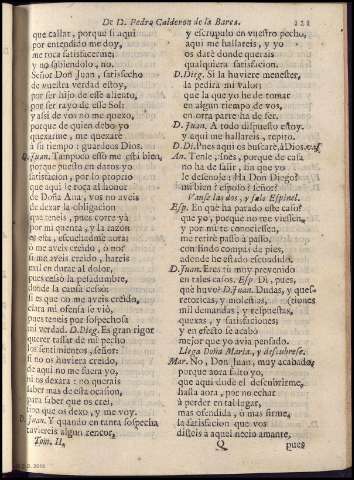 De D. Pedro Calderon de la Barca. 121
que callar, porque si aqui
por entendido me doy,
me toca satisfacerme;
y no sabiendolo, no.
Señor Don Juan, satisfecho
de vuestra verdad estoy,
por ser hijo de esse aliento,
por ser rayo de esse Sol:
y assi de vos no me quexo,
porque de quien debo yo
quexarme, me quexarè
à su tiempo: guardeos Dios.
D. Juan. Tampoco esso me està bien,
porque puesto en daros yo
satisfacion, por lo proprio
que aqui le toca al honor
de Doña Ana, vos no aveis
de dexar la obligacion
que teneis, pues corre yà
por mi quenta, y la razon
es esta, escuchadme aora:
ò me aveis creido, ò no?
si me aveis creido, hareis
mal en durar al dolor,
pues cessò la pesadumbre,
donde la causa cessò.
si es que no me aveis creido,
clara mi ofensa se viò,
pues teneis por sospechosa
mi verdad. D. Dieg. Es gran rigor
querer tassar de mi pecho
los sentimientos, señor:
si no os huviera creido,
de aqui no me fuera yo,
ni os dexara: no querais
saber mas de esta ocasion,
para saber que os crei,
sino que os dexo, y me voy.
D. Juan. Y quando en tanta sospecha
tuvierais algun rencor,
Tom. II.
y escrupulo en vuestro pecho,
aqui me hallareis, y yo
os darè donde querais
qualquiera satisfacion.
D. Dieg. Si la huviere menester,
la pedirà mi valor;
que la que yo he de tomar
en algun tiempo de vos,
en otra parte ha de ser.
D. Juan. A todo dispuesto estoy,
y aqui me hallareis, repito.
D. Di. Pues aqui os buscarè, à Dios. vas.
An. Tenle, Inès, porque de casa
no ha de salir, sin que yo
le defiende: Ha Don Diego!
mi bien! esposo! señor!
Vanse las dos, y sale Espinel.
Esp. En què ha parado este caso?
que yo, porque no me viessen,
y por mi te conociessen,
me retirè passo à passo,
con lindo compàs de pies,
adonde he estado escondido.
D. Juan. Eres tu muy prevenido
en tales casos. Esp. Di, pues,
què huvo? D. Juan. Dudas, y ques-
retoricas, y molestias, (tiones
mil demandas, y respuestas,
quexas, y satisfaciones;
y en efecto se acabò
mejor que yo avia pensado.
Llega Doña Maria, y descubrese.
Mar. No, Don Juan, muy acabado,
porque aora falto yo,
que aqui dudè el descubrirme,
hasta aora, por no echar
à perder en tal lugar,
mas ofendida, ò mas firme,
la satisfacion que vos
disteis à aquel necio amante,
Q pues